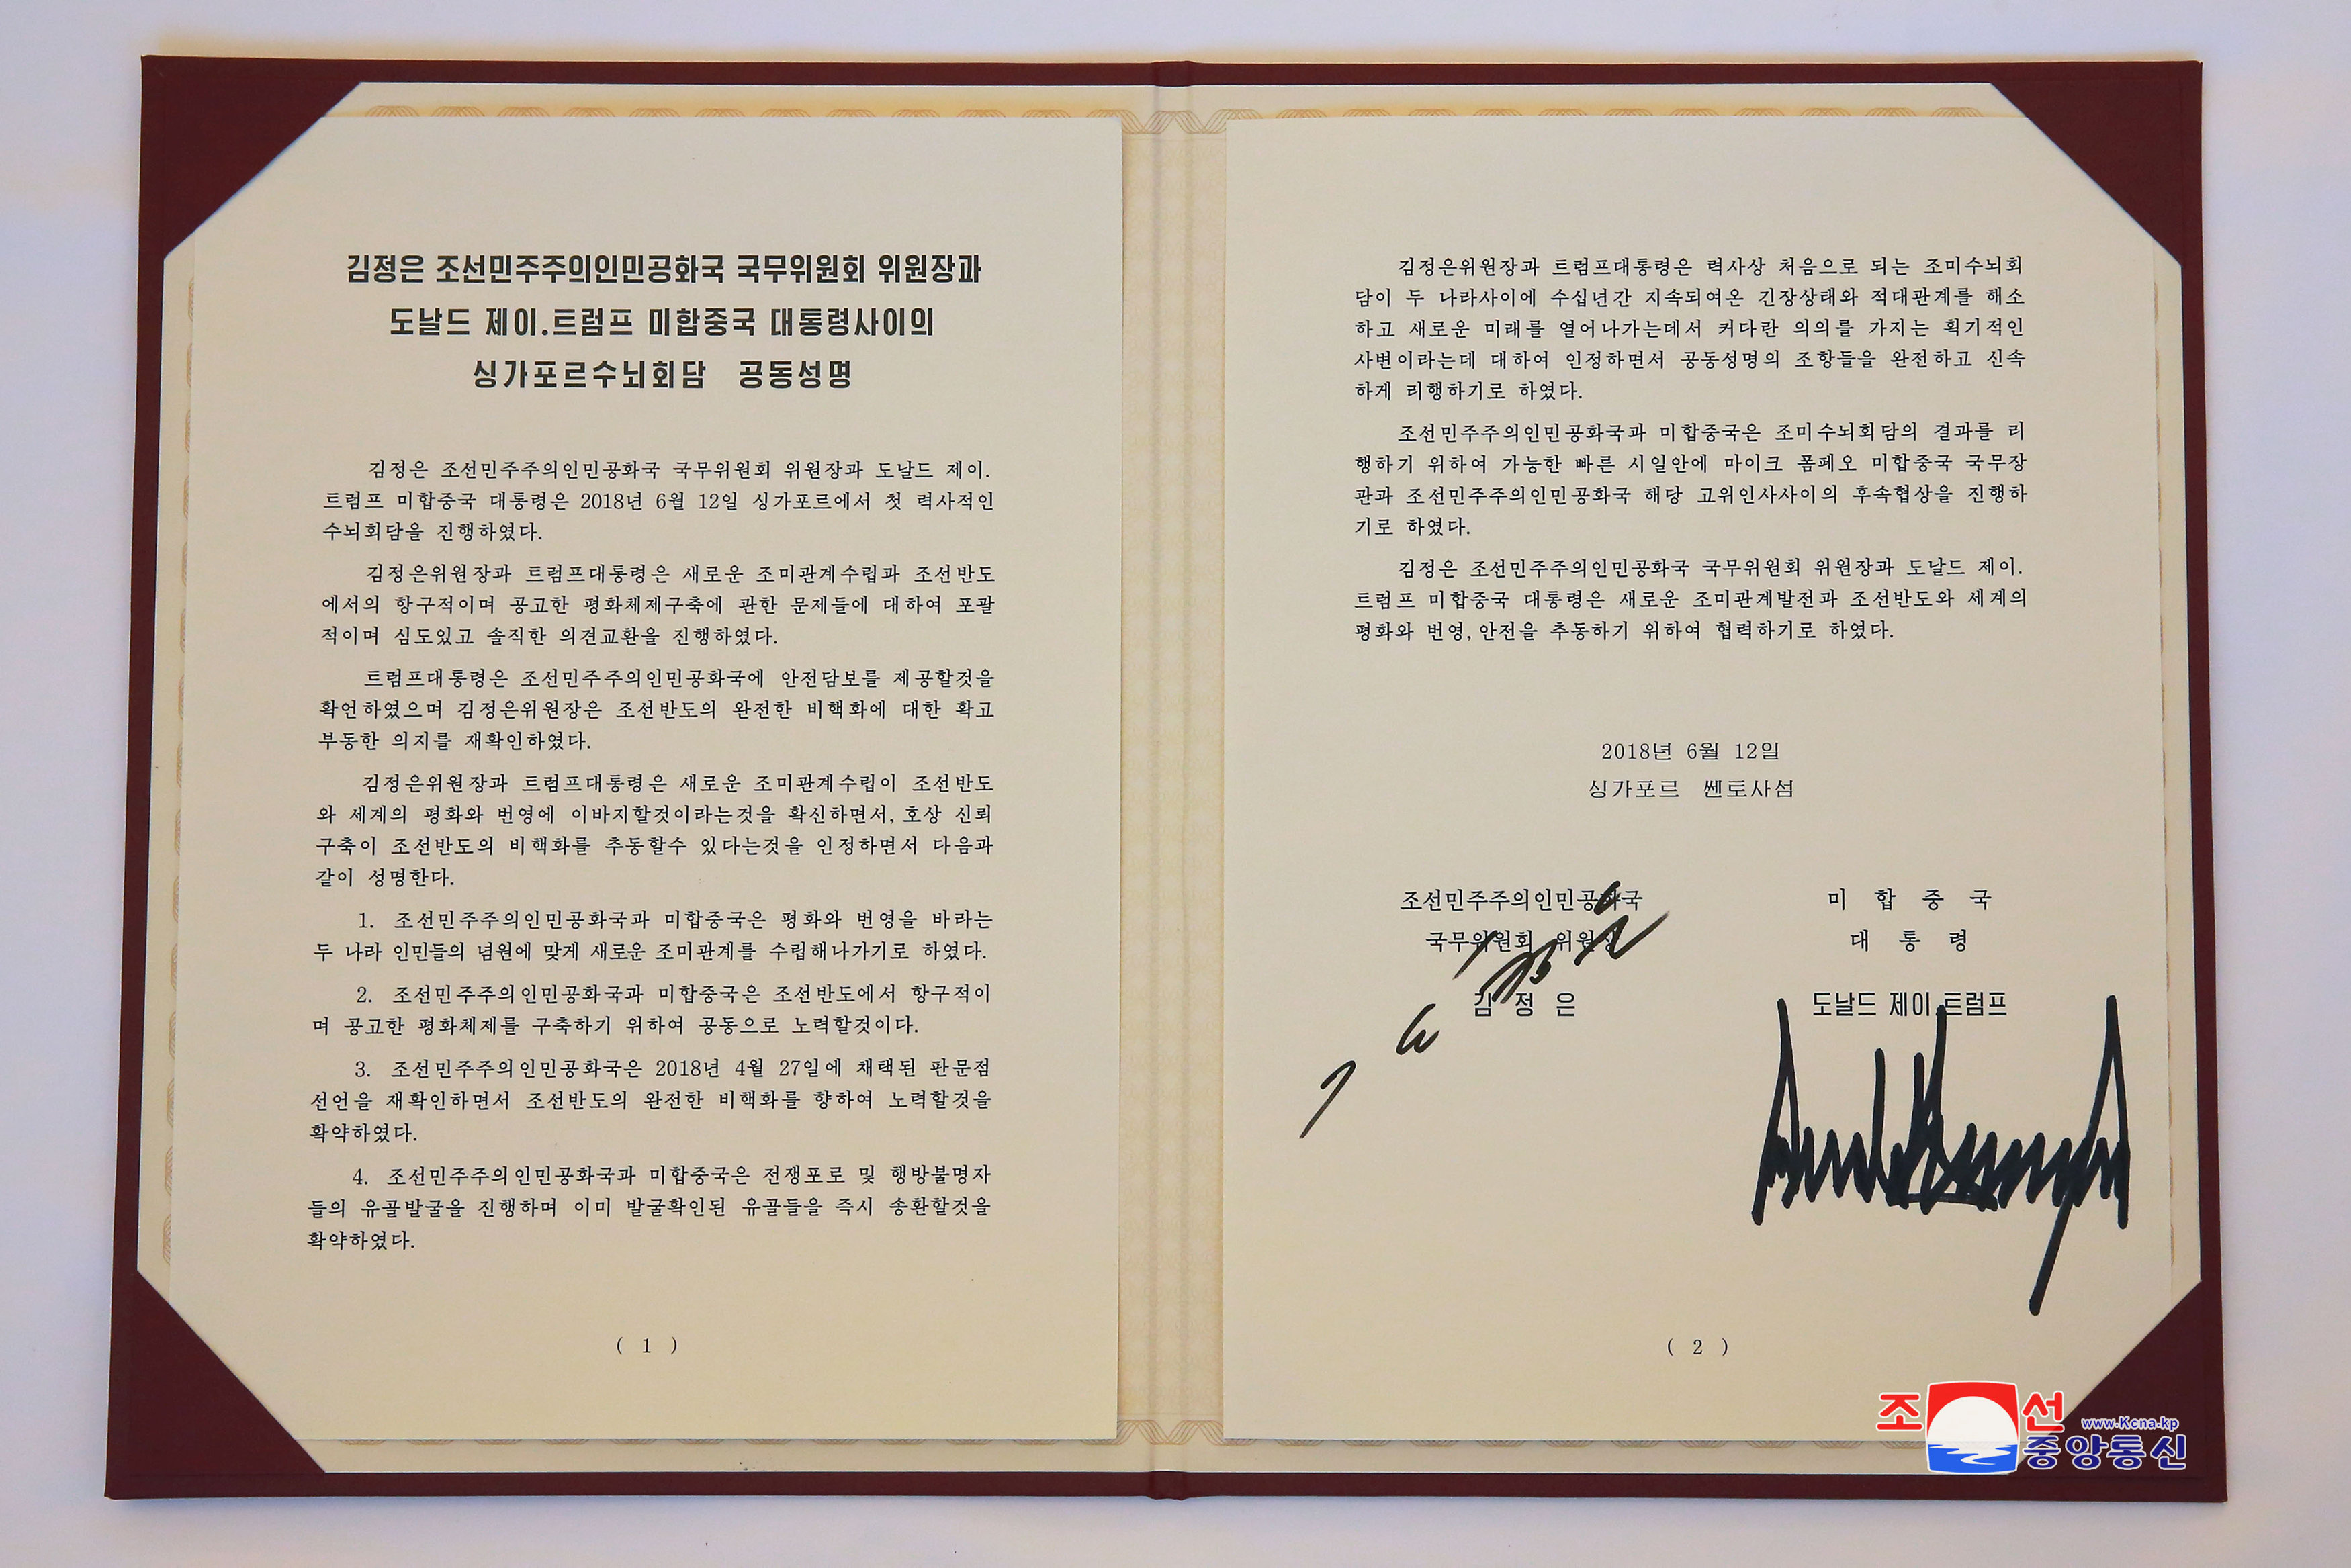 김정은 조선민주주의인민공화국 국무위원회 위원장과
도날드 제이.트럼프 미합중국 대통령사이의
싱가포르수뇌회담 공동성명
김정은 조선민주주의인민공화국 국무위원회 위원장과 도날드 제이.
트럼프 미합중국 대통령은 2018년 6월 12일 싱가포르에서 첫 력사적인
수뇌회담을 진행하였다.
김정은위원장과 트럼프대통령은 새로운 조미관계수립과 조선반도
에서의 항구적이며 공고한 평화체제구축에 관한 문제들에 대하여 포괄
적이며 심도있고 솔직한 의견교환을 진행하였다.
트럼프대통령은 조선민주주의인민공화국에 안전담보를 제공할것을
확언하였으며 김정은위원장은 조선반도의 완전한 비핵화에 대한 확고
부동한 의지를 재확인하였다.
김정은위원장과 트럼프대통령은 새로운 조미관계수립이 조선반도
와 세계의 평화와 번영에 이바지할것이라는것을 확신하면서, 호상 신뢰
구축이 조선반도의 비핵화를 추동할수 있다는것을 인정하면서 다음과
같이 성명한다.
1. 조선민주주의인민공화국과 미합중국은 평화와 번영을 바라는
두 나라 인민들의 념원에 맞게 새로운 조미관계를 수립해나가기로 하였다.
2. 조선민주주의인민공화국과 미합중국은 조선반도에서 항구적이
며 공고한 평화체제를 구축하기 위하여 공동으로 노력할것이다.
3. 조선민주주의인민공화국은 2018년 4월 27일에 채택된 판문점
선언을 재확인하면서 조선반도의 완전한 비핵화를 향하여 노력할것을
확약하였다.
4. 조선민주주의인민공화국과 미합중국은 전쟁포로 및 행방불명자
들의 유골발굴을 진행하며 이미 발굴확인된 유골들을 즉시 송환할것을
확약하였다.
( 1 )
김정은위원장과 트럼프대통령은 력사상 처음으로 되는 조미수뇌회
담이 두 나라사이에 수십년간 지속되여온 긴장상태와 적대관계를 해소
하고 새로운 미래를 열어나가는데서 커다란 의의를 가지는 획기적인
사변이라는데 대하여 인정하면서 공동성명의 조항들을 완전하고 신속
하게 리행하기로 하였다.
조선민주주의인민공화국과 미합중국은 조미수뇌회담의 결과를 리
행하기 위하여 가능한 빠른 시일안에 마이크 폼페오 미합중국 국무장
관과 조선민주주의인민공화국 해당 고위인사사이의 후속협상을 진행하
기로 하였다.
김정은 조선민주주의인민공화국 국무위원회 위원장과 도날드 제이.
트럼프 미합중국 대통령은 새로운 조미관계발전과 조선반도와 세계의
평화와 번영, 안전을 추동하기 위하여 협력하기로 하였다.
2018년 6월 12일
싱가포르 쎈토사섬
조선민주주의인민공화국
국무위원회 위원장
김 정 은
미 합 중 국
대 통 령
도날드 제이.트럼프
( 2 )
조선
www.Kcna.kp
중앙통신